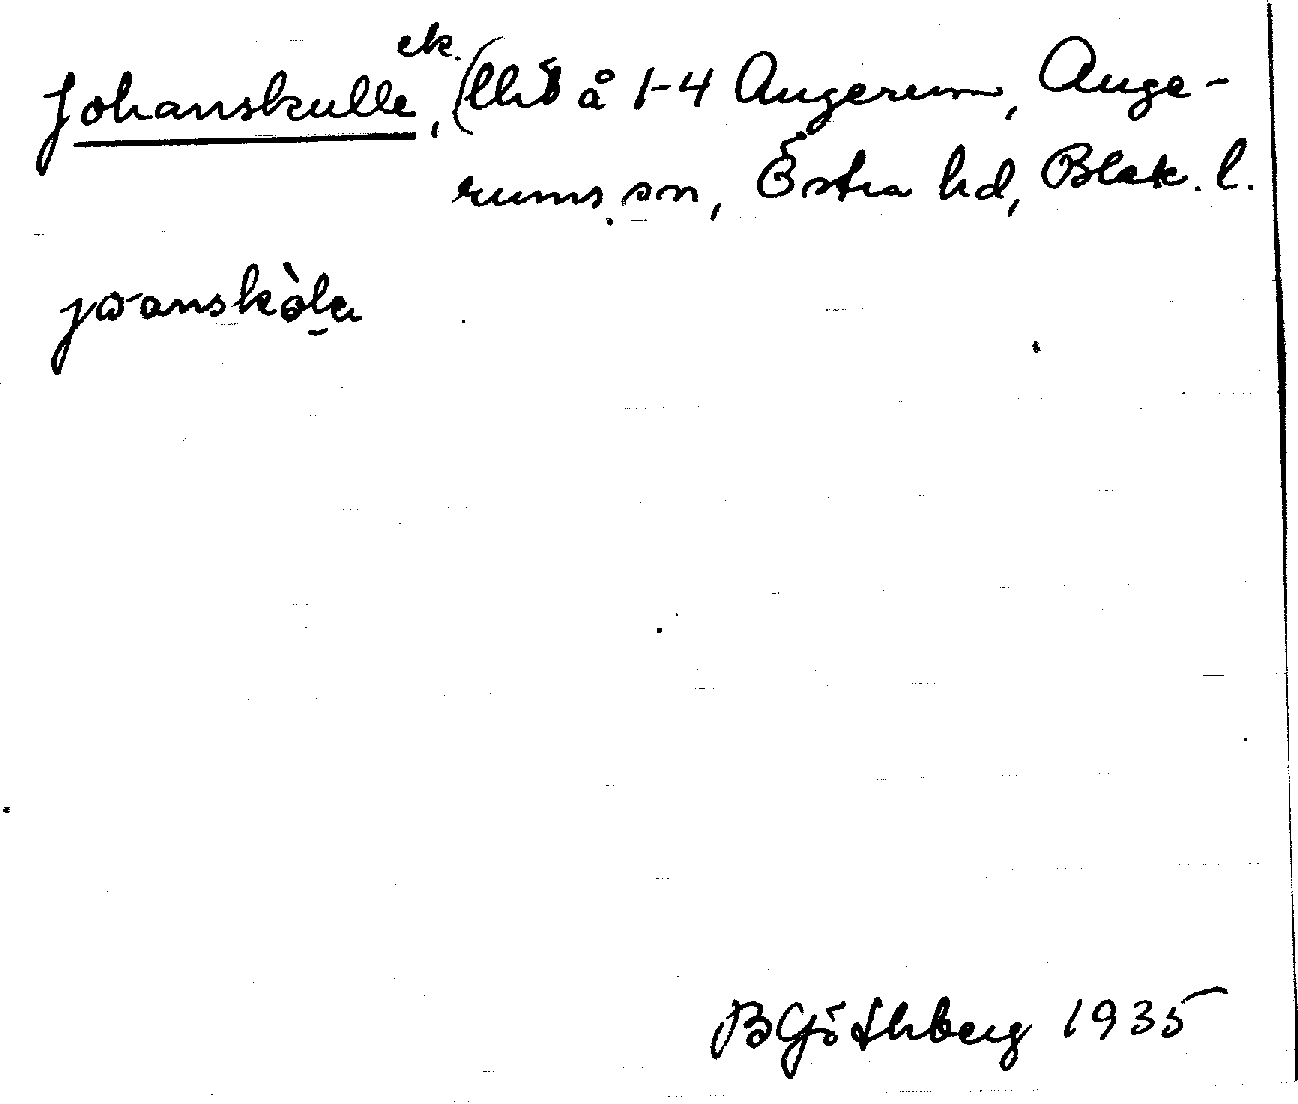 Johanskulle, ek. (lht å 1-4 Augerum, Auge-
rums sn, Östra hd, Blek. l.
joanskòla
B Göthberg 1935